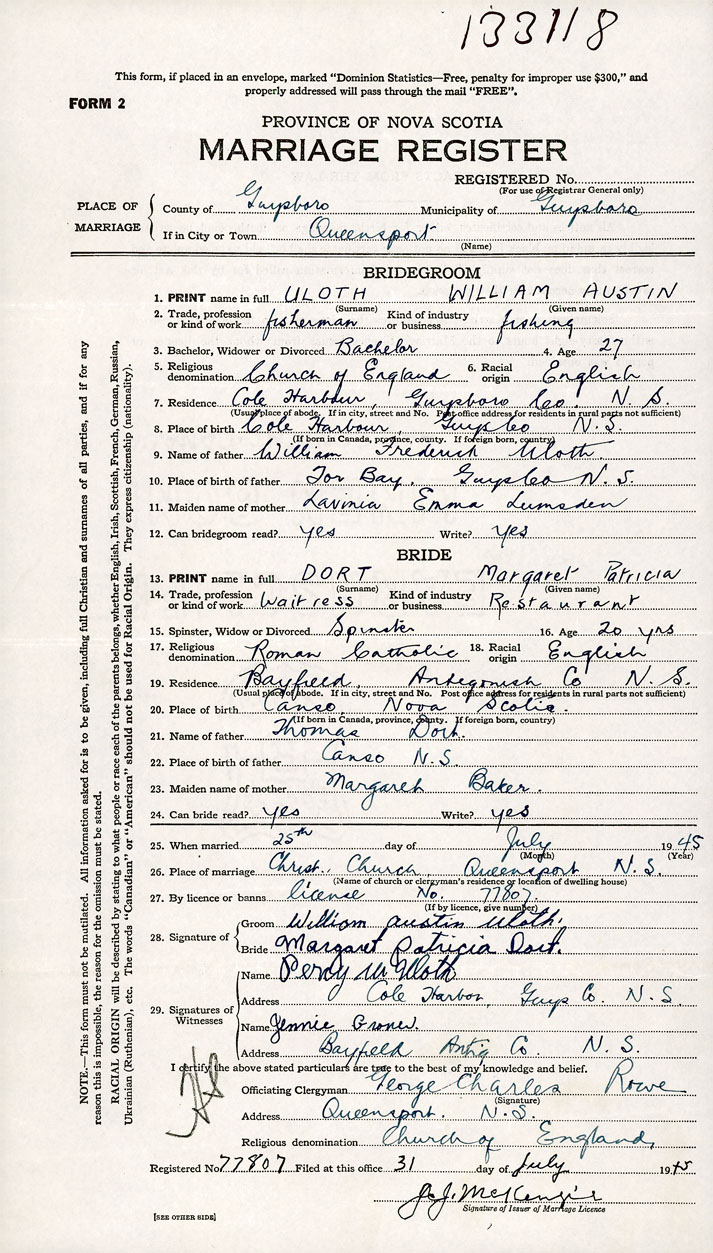 133118
This form, if placed in an envelope, marked "Dominion Statistics—Free, penalty for improper use $300," and
properly addressed will pass through the mail "FREE".
FORM 2
PROVINCE OF NOVA SCOTIA
MARRIAGE REGISTER
REGISTERED No.
(For use of Registrar General only)
PLACE OF MARRIAGE
County of Guysboro Municipality of Guysboro
If in City or Town Queensport
(Name)
BRIDEGROOM
1. PRINT name in full ULOTH WILLIAM AUSTIN
(Surname) (Given name)
2. Trade, profession or kind of work fisherman Kind of industry or business fishing
3. Bachelor, Widower or Divorced Bachelor 4. Age 27
5. Religious denomination Church of England 6. Racial origin English
7. Residence Cole Harbour, Guysboro Co. N. S.
(Usual place of abode. If in city, street and No. Post office address for residents in rural parts not sufficient)
8. Place of birth Cole Harbour, Guys Co N. S.
(If born in Canada, province, county. If foreign born, country)
9. Name of father William Frederick Uloth
10. Place of birth of father Tor Bay, Guys Co N. S.
11. Maiden name of mother Lavinia Emma Lumsden
12. Can bridegroom read? yes Write? yes
BRIDE
13. PRINT name in full DORT Margaret Patricia
(Surname) (Given name)
14. Trade, profession or kind of work Waitress Kind of industry or business Restaurant
15. Spinster, Widow or Divorced Spinster 16. Age 20 yrs
17. Religious denomination Roman Catholic 18. Racial origin English
19. Residence Bayfield, Antigonish Co N. S.
(Usual place of abode. If in city, street and No. Post office address for residents in rural parts not sufficient)
20. Place of birth Canso, Nova Scotia.
(If born in Canada, province, county. If foreign born, country)
21. Name of father Thomas Dort.
22. Place of birth of father Canso N. S
23. Maiden name of mother Margaret Baker.
24. Can bride read? yes Write? yes
25. When married 25th day of July 1945
(Month) (Year)
26. Place of marriage Christ Church Queensport N. S.
(Name of church or clergyman's residence or location of dwelling house)
27. By licence or banns license No. 77807.
(If by licence, give number)
28. Signature of
Groom William Austin Uloth.
Bride Margaret Patricia Dort.
29. Signatures of Witnesses
Name Percy W Uloth
Address Cole Harbor, Guys Co. N. S.
Name Jennie
Address Bayfield Antig Co. N. S.
I certify the above stated particulars are true to the best of my knowledge and belief.
Officiating Clergyman George Charles Rowe
(Signature)
Address Queensport. N. S.
Religious denomination Church of England,
Registered No. 77807 Filed at this office 31 day of July 1945
J. J. McKenzie
Signature of Issuer of Marriage Licence
[SEE OTHER SIDE]
NOTE.—This form must not be mutilated. All information asked for is to be given, including full Christian and surnames of all parties, and if for any
reason this is impossible, the reason for the omission must be stated.
RACIAL ORIGIN will be described by stating to what people or race each of the parents belongs, whether English, Irish, Scottish, French, German, Russian,
Ukrainian (Ruthenian), etc. The words "Canadian" or "American" should not be used for Racial Origin. They express citizenship (nationality).